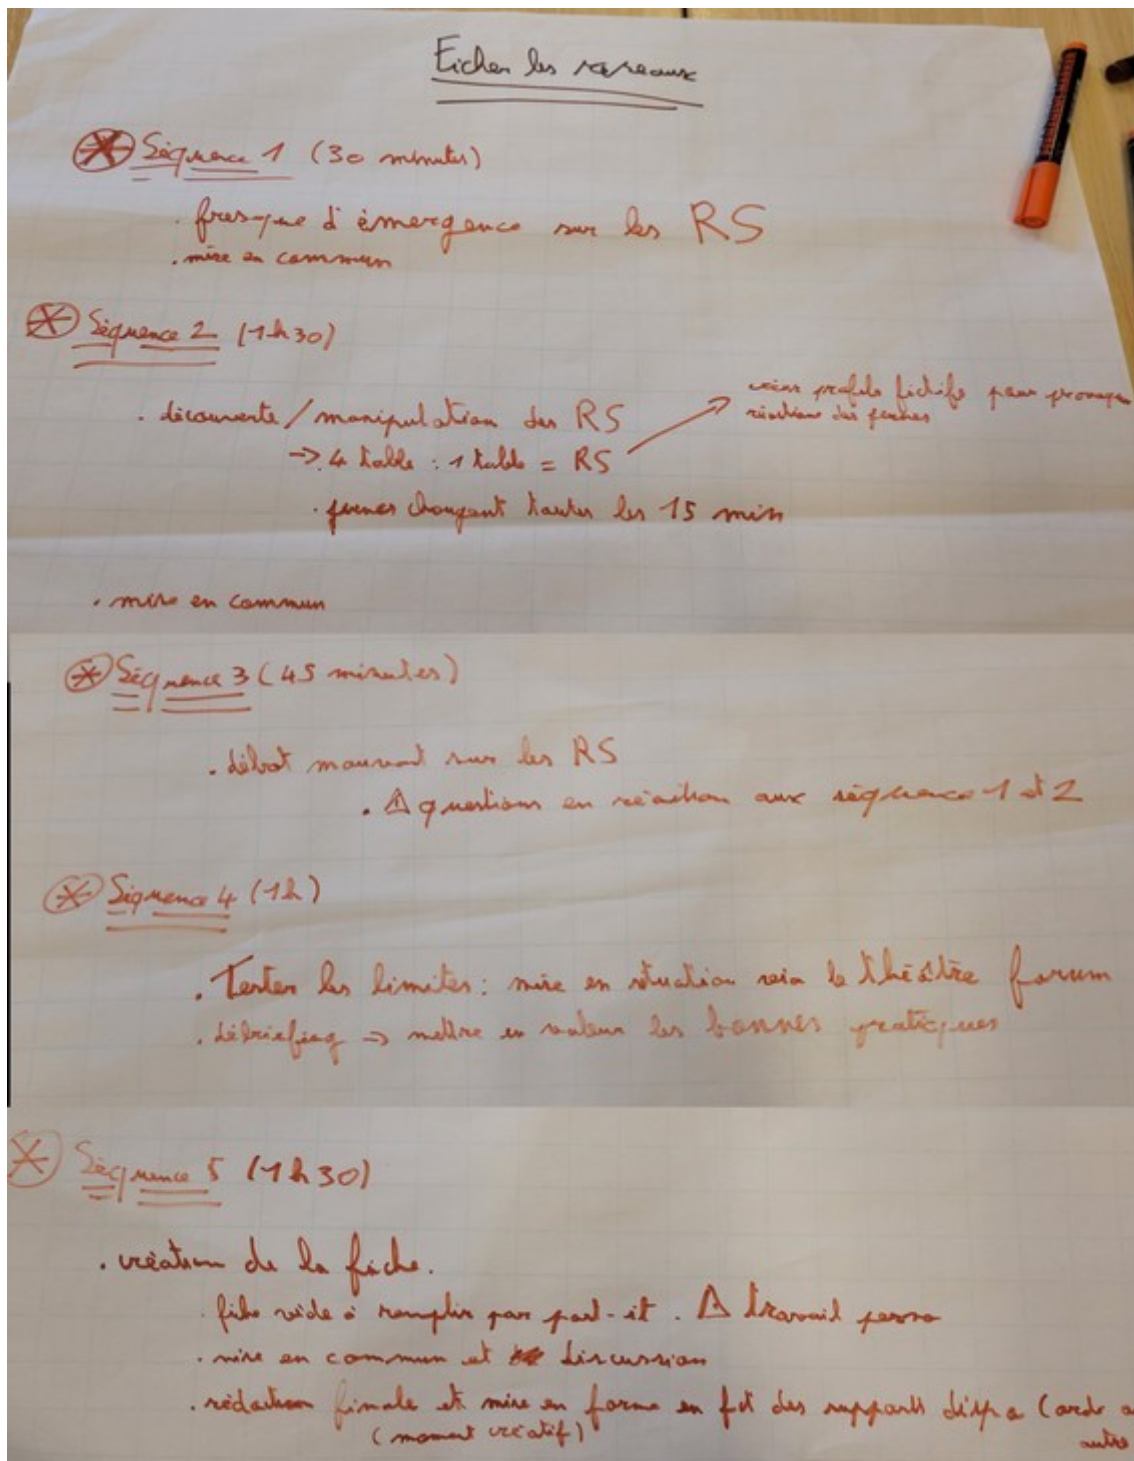 Ficher les réseaux
Séquence 1 (30 minutes)
. fresque d'émergence sur les RS
. mise en commun
Séquence 2 (1h30)
créer profils fictifs pour provoquer
réactions des jeunes
. découverte/manipulation des RS
→ 4 table : 1 table = RS
. jeunes changent toutes les 15 min
. mise en commun
Séquence 3 (45 minutes)
. débat mouvant sur les RS
. ⚠ questions en réaction aux séquence 1 et 2
Séquence 4 (1h)
. Tester les limites : mise en situation via le théâtre forum
. débriefing → mettre en valeur les bonnes pratiques
Séquence 5 (1h30)
. création de la fiche.
. fiche vide à remplir par post-it. ⚠ travail perso
. mise en commun et discussion
. rédaction finale et mise en forme en fct des supports dispo
(moment créatif) autre